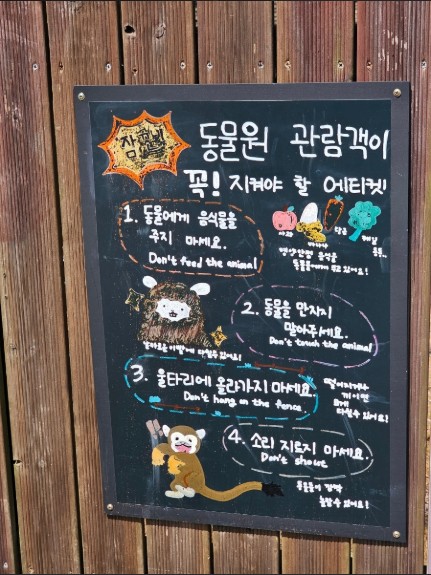 잠깐!
동물원 관람객이
꼭! 지켜야 할 에티켓!
1. 동물에게 음식물을
주지 마세요.
Don't feed the animal
사과
바나나
당근
영양만점 음식을
동물들에게 주고 있어요!
2. 동물을 만지지
말아주세요.
Don't touch the animal
날카로운 이빨에 다칠수 있어요!
3. 울타리에 올라가지 마세요.
Don't hang on the fence
떨어지거나
끼이면
크게
다칠수 있어요!
4. 소리 지르지 마세요.
Don't shout
동물들이 깜짝
놀랄수 있어요!